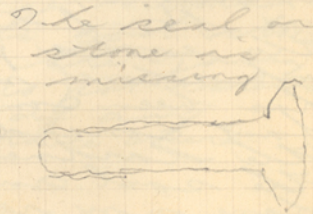 The seal or
stone is
missing